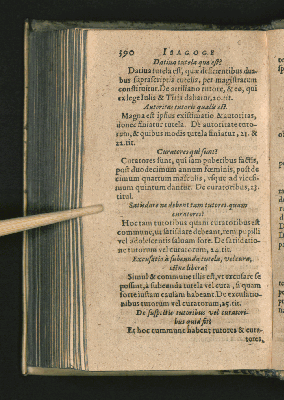 390 ISAGOGE
Datiua tutela quæ est?
Datiua tutela est, quæ deficientibus dua-
bus suprascriptis tutelis, per magistratum
constituitur. De attiliano tutore, & eo, qui
ex lege Iulia & Titia dabatur, 20. tit.
Autoritas tutoris qualis est?
Magna est ipsius existimatio & autoritas,
donec finiatur tutela. De autoritate tuto-
rum, & quibus modis tutela finiatur, 21. &
22. tit.
Curatores qui sunt?
Curatores sunt, qui iam puberibus factis,
post duodecimum annum fœminis, post de
cimum quartum masculis, vsque ad vicesi-
mum quintum dantur. De curatoribus, 23.
titul.
Satisdare ne debent tam tutores quam
curatores?
Hoc tam tutoribus quam curatoribus est
commune, vt satisdare debeant, rem pupilli
vel adolescentis saluam fore. De satisdatio-
ne tutorum vel curatorum, 24. tit.
Excusatio à subeunda tutela, vel cura,
estne libera?
Simul & commune illis est, vt excusare se
possint, à subeunda tutela vel cura, si quam
forte iustam causam habeant. De excusatio-
nibus tutorum vel curatorum, 25. tit.
De suspectis tutoribus vel curatori-
bus quid sit?
Et hoc commune habent tutores & cura-
tores,